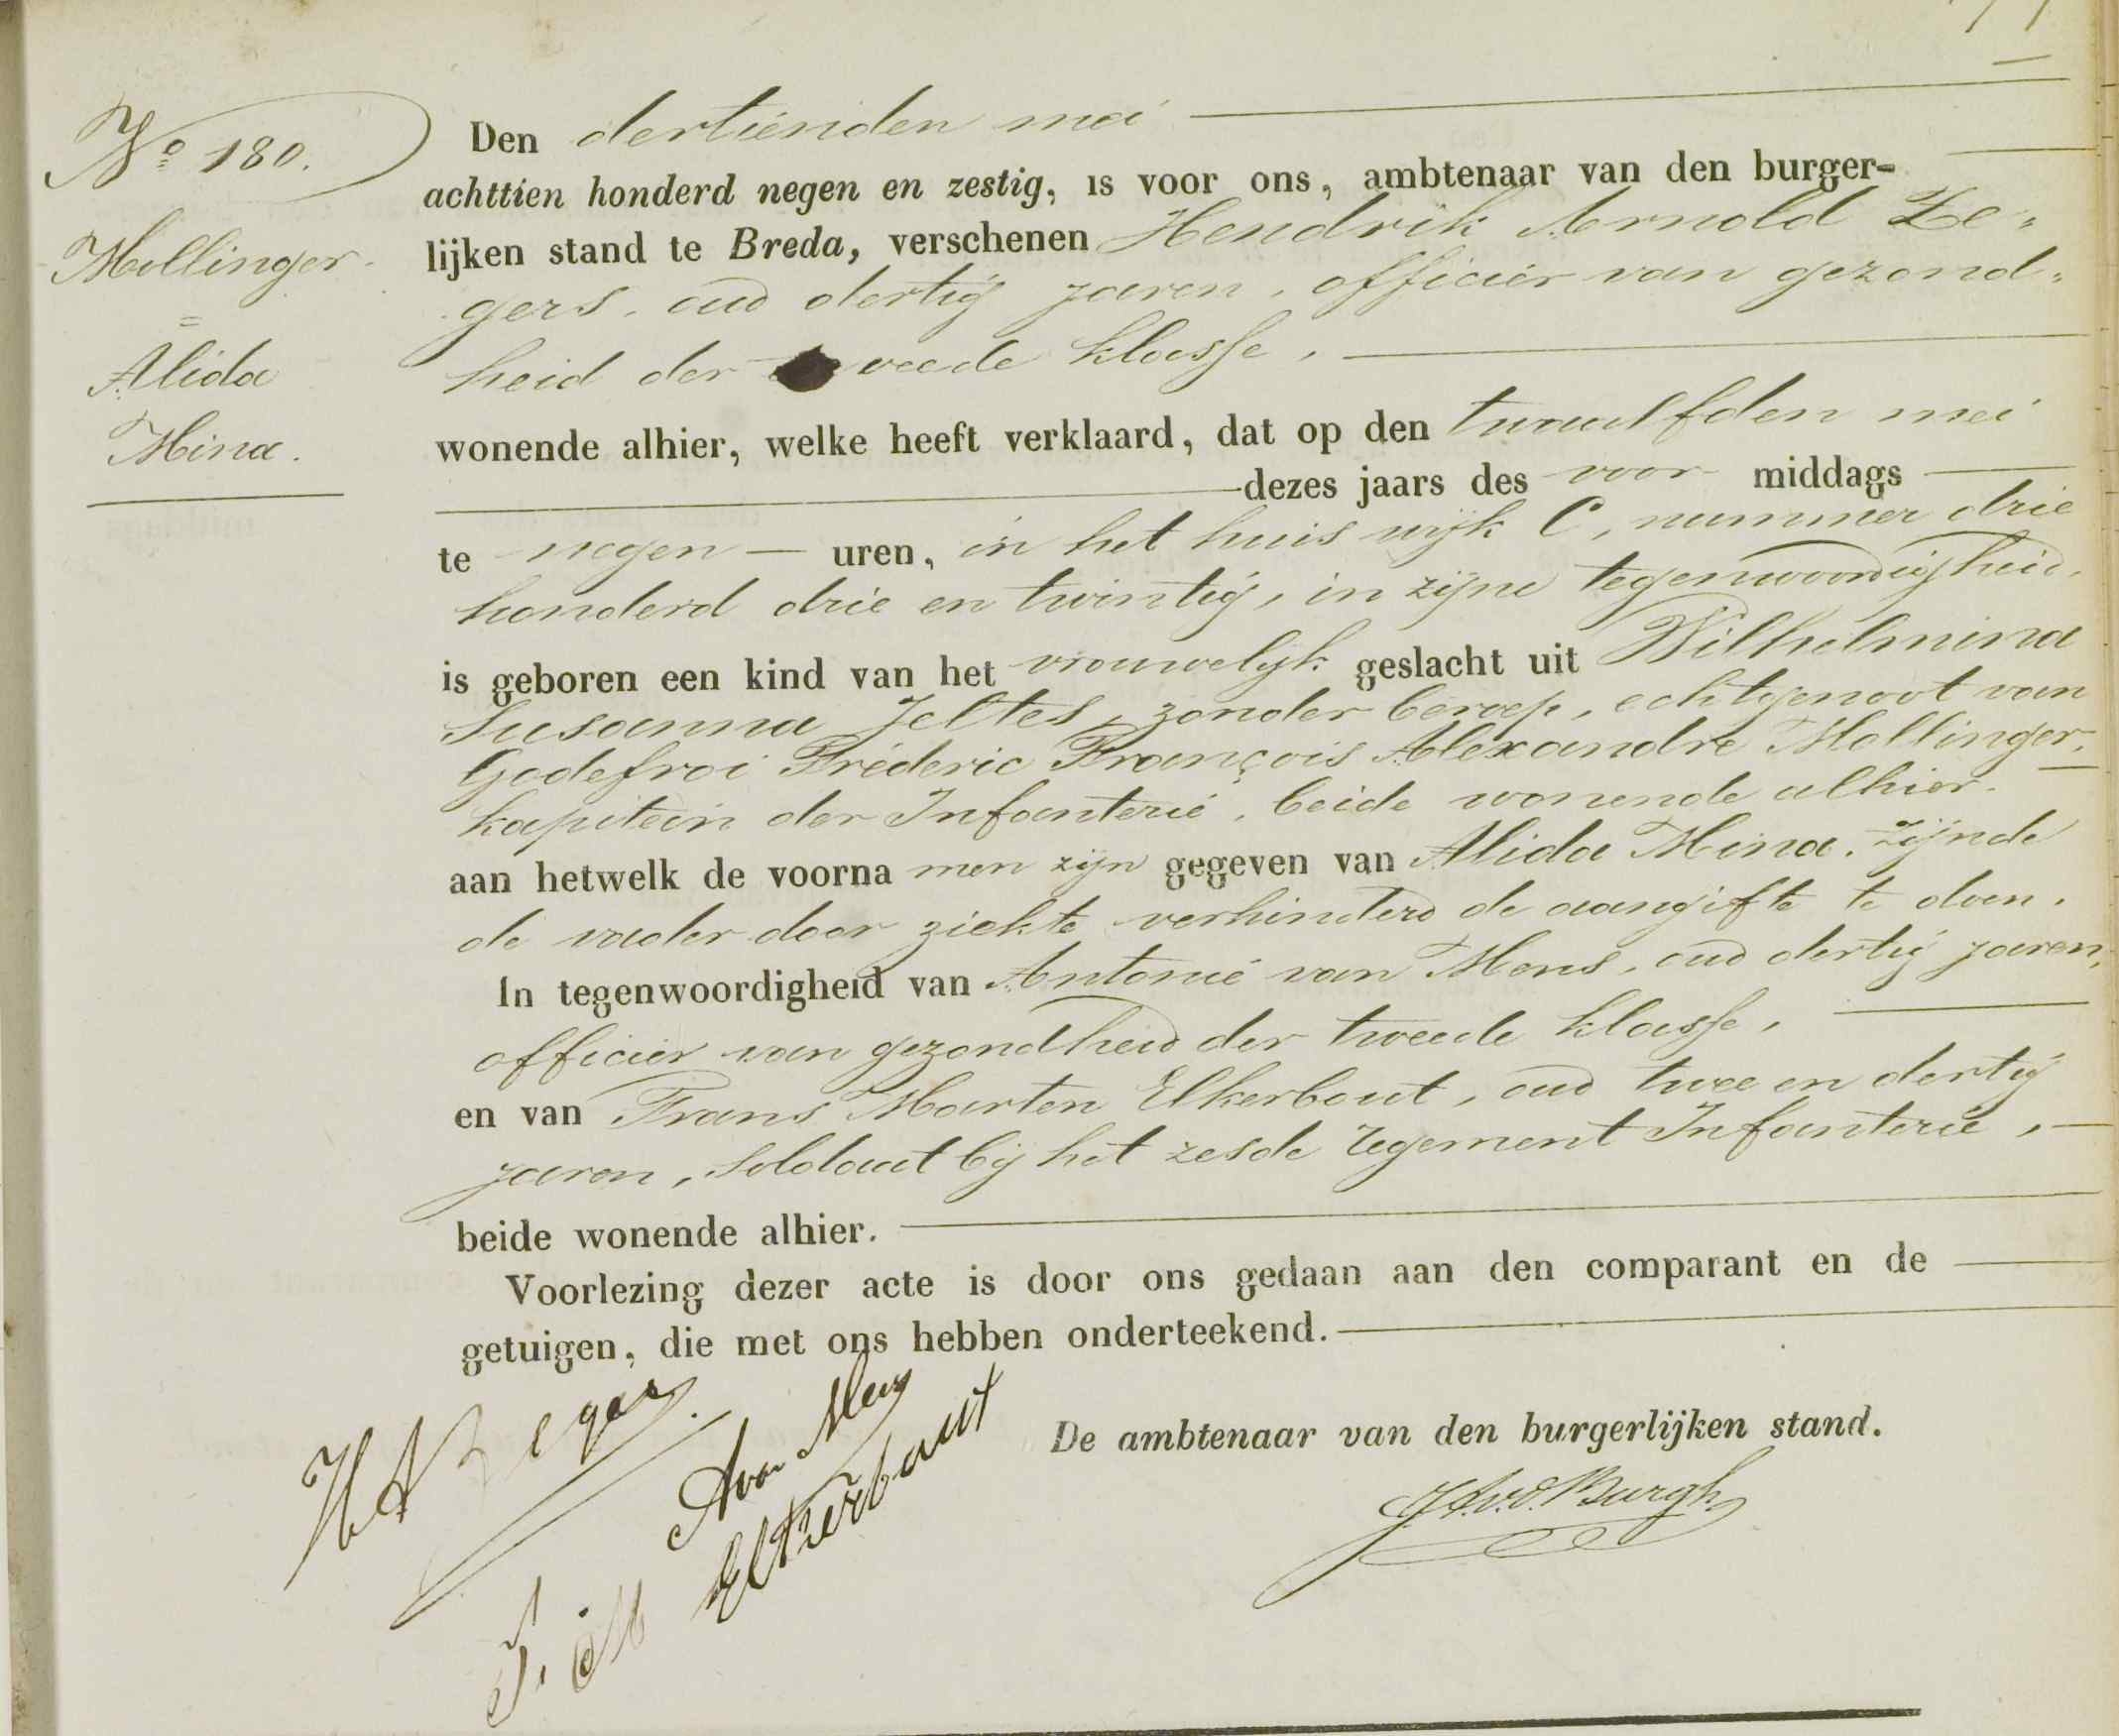 Nº 180.
Mollinger
=
Alida
Mina.
Den dertienden mei
achttien honderd negen en zestig, is voor ons, ambtenaar van den burger-
lijken stand te Breda, verschenen Hendrik Arnold Ze„
gers, oud dertig jaren, officier van gezond„
heid der tweede klasse,
wonende alhier, welke heeft verklaard, dat op den twaalfden mei
dezes jaars des voor middags
te negen — uren, in het huis wijk C, nummer drie
honderd drie en twintig, in zijne tegenwoordigheid,
is geboren een kind van het vrouwelijk geslacht uit Wilhelmina
Susanna Jeltes, zonder beroep, echtgenoot van
Godefroi Fréderic François Alexandre Mollinger,
kapitein der Infanterie, beide wonende alhier.
aan hetwelk de voorna men zijn gegeven van Alida Mina. zijnde
de vader door ziekte verhinderd de aangifte te doen.
In tegenwoordigheid van Antonie van Mens, oud dertig jaren,
officier van gezondheid der tweede klasse,
en van Frans Marten Elkerbout, oud twee en dertig
jaren, soldaat bij het zesde regement Infanterie,
beide wonende alhier.
Voorlezing dezer acte is door ons gedaan aan den comparant en de
getuigen, die met ons hebben onderteekend.
HA Zegers
A van Mens
F. M Elkerbout
De ambtenaar van den burgerlijken stand.
J.A.v.d.Burgh.